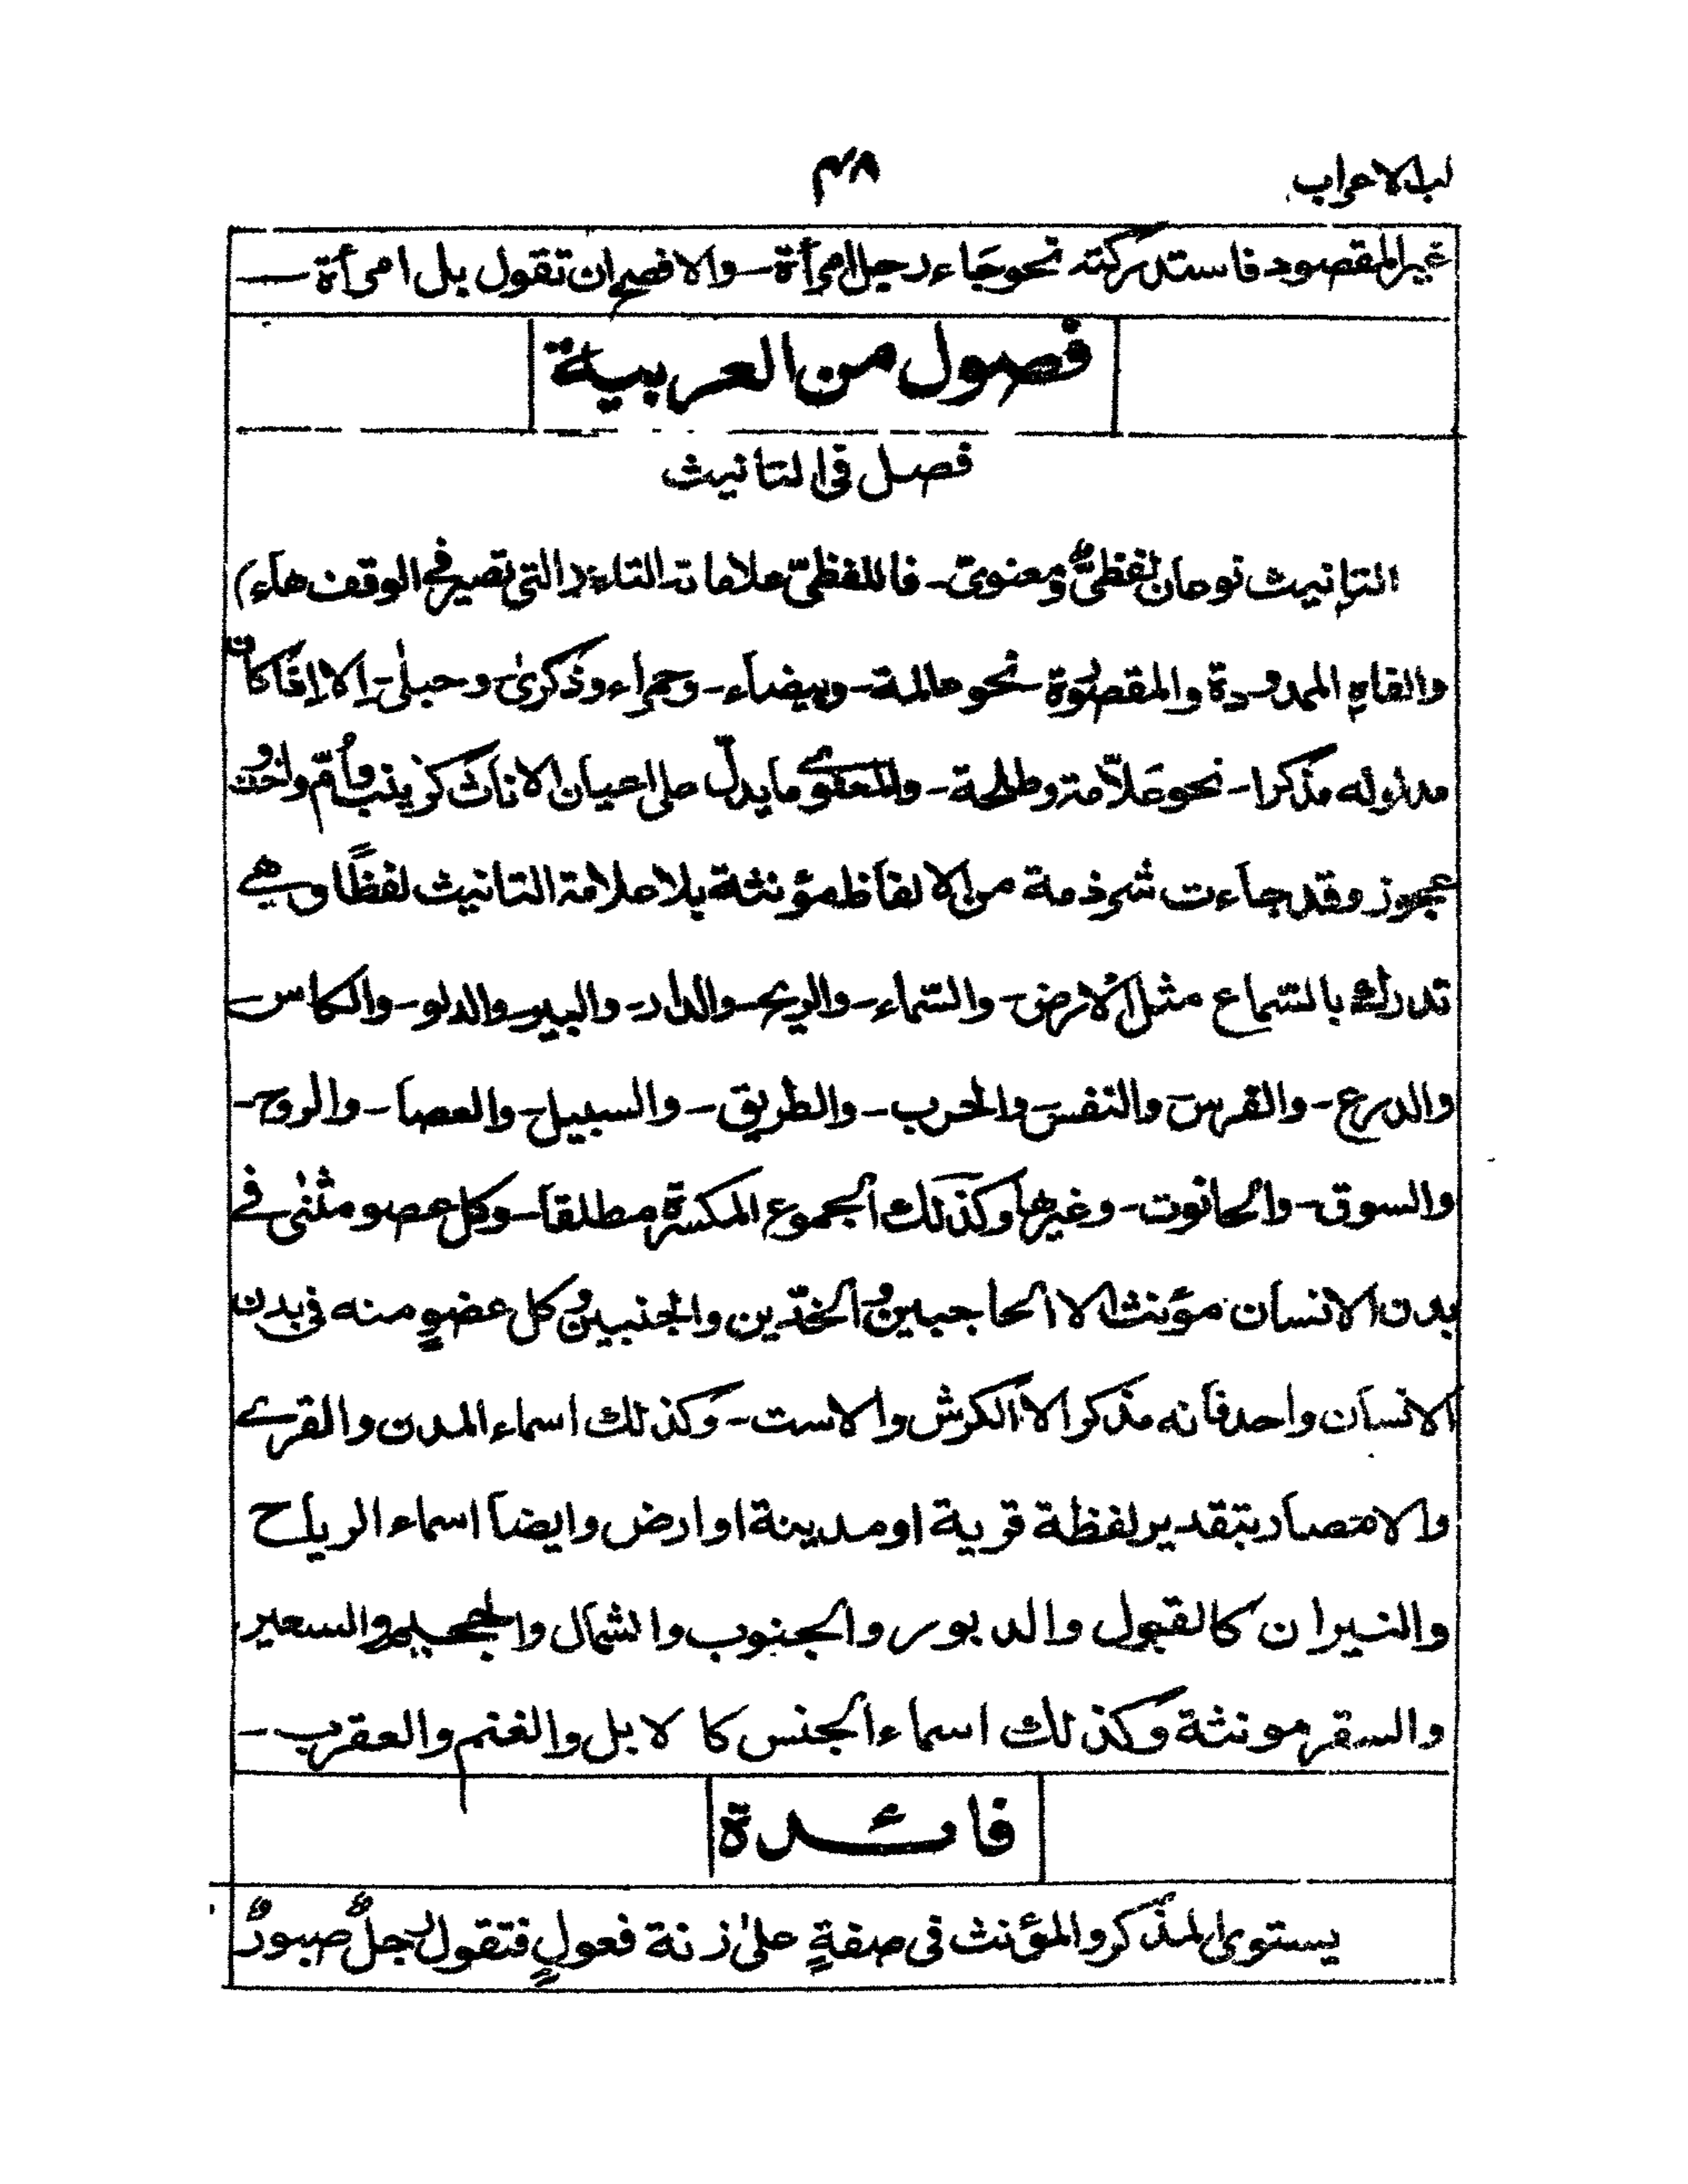 لب الاعراب
۴۸
غير المقصود فاستدركته نحو جاء رجل امرأة - والافصح ان تقول بل امرأة -
فصول من العربية
فصل في التانيث
التانيث نوعان لفظيٌّ ومعنويّ - فاللفظيّ علاماته التاء (التي تصير في الوقف هاء)
والفاه الممدودة والمقصورة - نحو عالمة - وبيضاء - وحمراء وذكرىٰ - وحبلىٰ - الا اذا كان
مدلوله مذكرا - نحو علّامة وطلحة - والمعنوي ما يدلّ على اعيان الاناث كزينب وأمّ واخت
عجوز وقد جاءت شرذمة من الالفاظ مؤنثة بلا علامة التانيث لفظًا وهي
تدرك بالسّماع مثل الارض - والسّماء - والريح - والدار - والبير - والدلو - والكاس
والدرع - والقوس والنفس والحرب - والطريق - والسبيل - والعصا - والروح -
والسوق - والحانوت - وغيرها وكذلك الجموع المكسرة مطلقا - وكل عضو مثنى في
بدن الانسان مؤنث الا الحاجبين والخدّين والجنبين وكل عضوٍ منه في بدن
الانسان واحد فانه مذكر الا الكرش والاست - وكذلك اسماء المدن والقرى
والامصار بتقدير لفظة قرية او مدينة او ارض وايضا اسماء الرياح
والنيران كالقبول والدبور والجنوب والشمال والجحيم والسعير
والسقر مونثة وكذلك اسماء الجنس كالابل والغنم والعقرب -
فائدة
يستوي المذّكر والمؤنث في صفةٍ علىٰ زنة فعولٍ فتقول رجلٌ صبورٌ